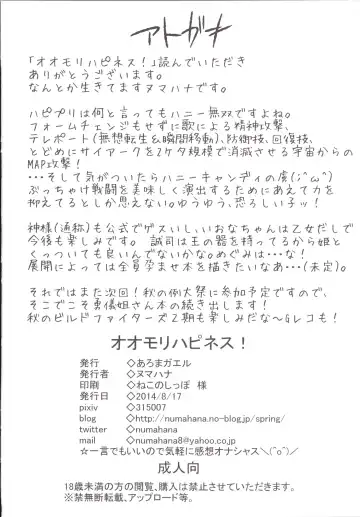 アトガキ
「オオモリハピネス！」読んでいただき
ありがとうございます。
なんとか生きてますヌマハナです。
ハピプリは何と言ってもハニー無双ですよね。
フォームチェンジもせずに歌による精神攻撃、
テレポート(無想転生&瞬間移動)、防御技、回復技、
とどめにサイアークを2ケタ規模で消滅させる宇宙からの
MAP攻撃！
…そして気がついたらハニーキャンディの虜(;^ω^)
ぶっちゃけ戦闘を美味しく演出するためにあえて力を
抑えてるとしか思えない。ゆうゆう、恐ろしい子ッ！
神様(通称)も公式でゲスいし、いおなちゃんは乙女だしで
今後も楽しみです。誠司は王の器を持ってるから姫と
くっついても良いんでないかな。めぐみは…な！
展開によっては全員孕ませ本を描きたいなあ…(未定)。
それではまた次回！秋の例大祭に参加予定ですので、
そこでこそ勇儀姐さん本の続き出します！
秋のビルドファイターズ2期も楽しみだな～Gレコも！
オオモリハピネス！
発行 ◇あろまガエル
発行者 ◇ヌマハナ
印刷 ◇ねこのしっぽ 様
発行日 ◇2014/8/17
pixiv ◇315007
blog ◇http://numahana.no-blog.jp/spring/
twitter ◇numahana
mail ◇numahana8@yahoo.co.jp
☆一言でもいいので気軽に感想オナシャス＼(^o^)／
成人向
18歳未満の方の閲覧、購入は禁止させていただきます。
※禁無断転載、アップロード等。